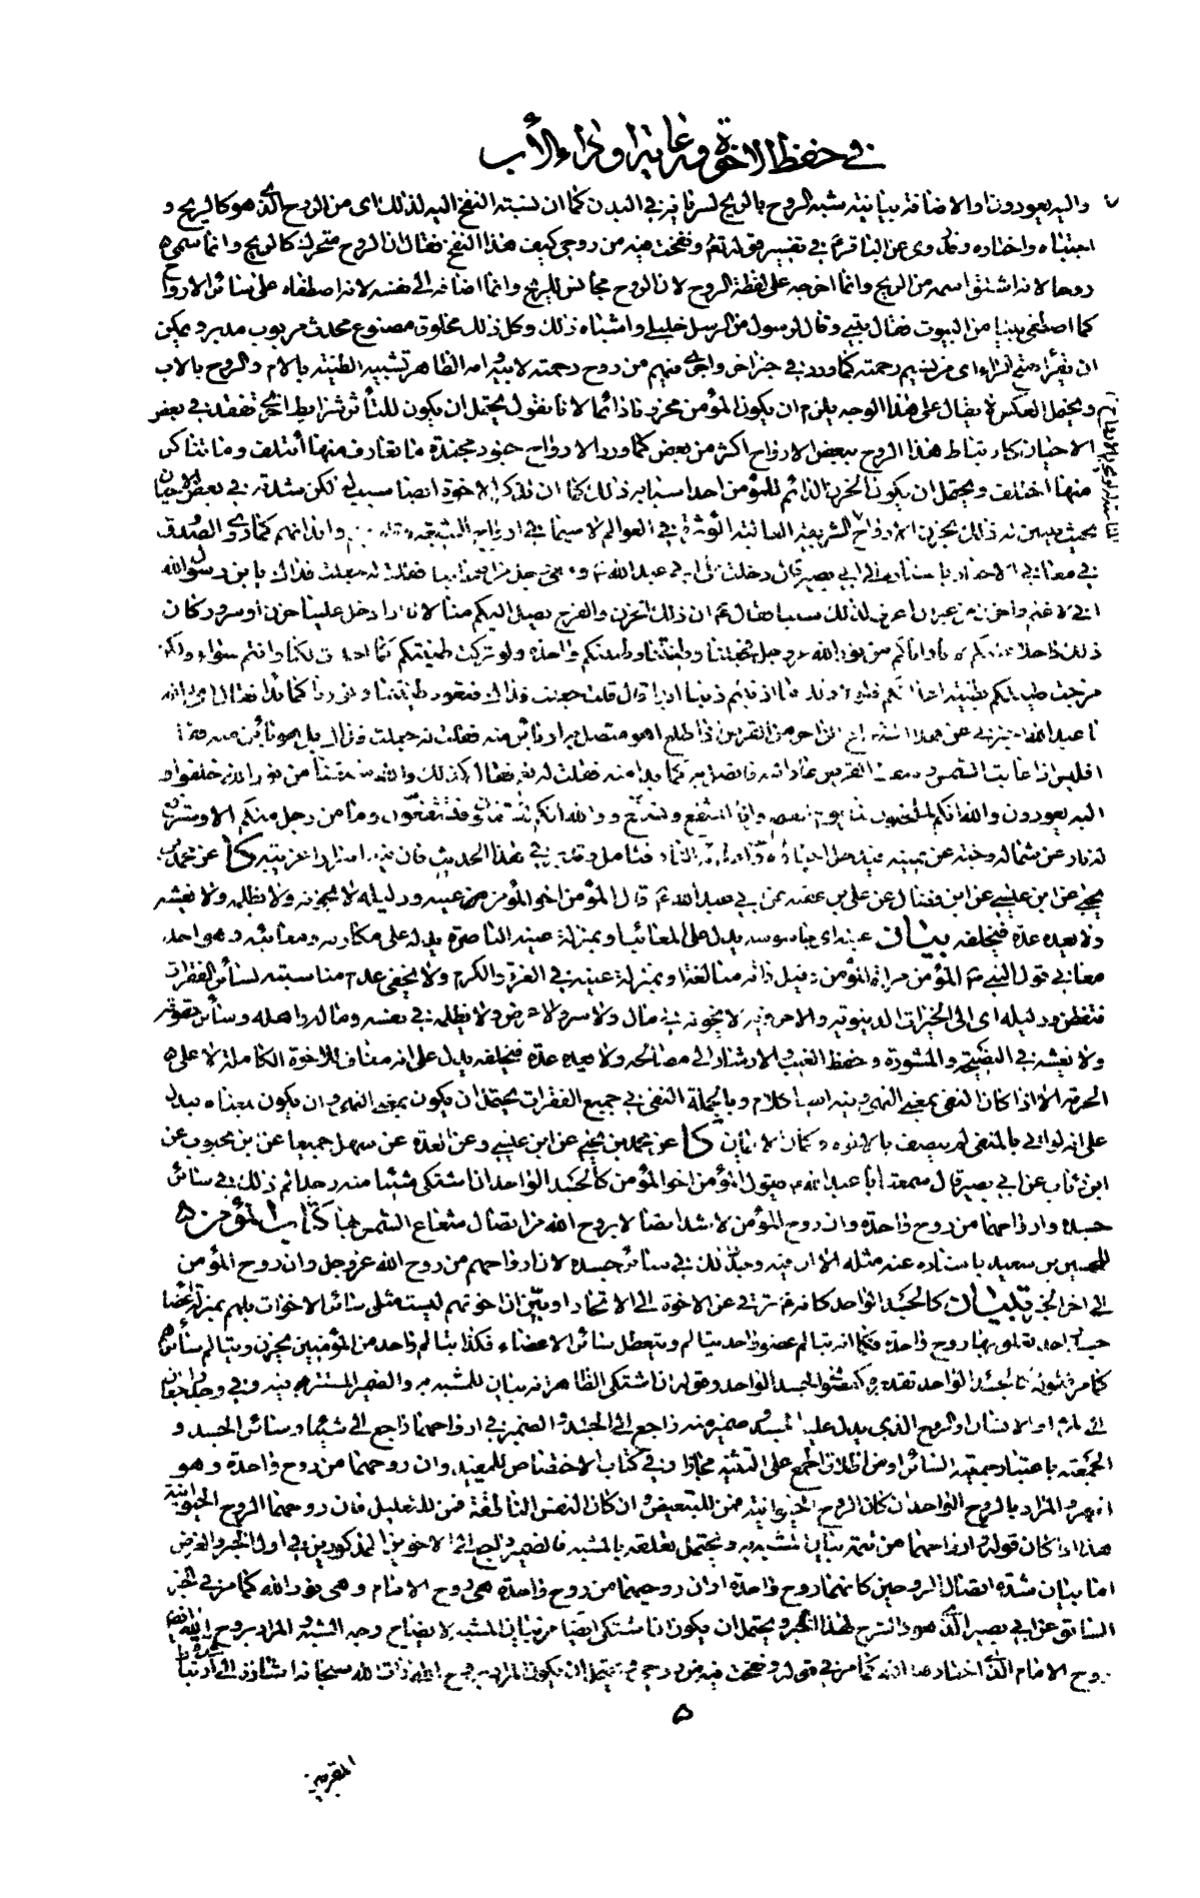 في حفظ الاخوة ورعاية اوداء الأب
واليه يعودون والاضافة بيانية شبه الروح بالريح لسريانه في البدن كما ان نسبته النفخ اليه لذلك اى من الروح الذي هو كالريح و
اجتباه واختاره وقد روى عن الباقر ع في تفسير قوله تعالى ونفخت فيه من روحي كيف هذا النفخ فقال ان الروح متحرك كالريح وانما سمى
روحا لانه اشتق اسمه من الريح وانما اخرجه على لفظة الروح لان الروح مجانس للريح وانما اضافه الى نفسه لانه اصطفاه على سائر الارواح
كما اصطفى بيتا من البيوت فقال بيتي وقال لرسول من الرسل خليلي واشباه ذلك وكل ذلك مخلوق مصنوع محدث مربوب مدبر ويمكن
ان يقرأ بفتح الراء اى من نسيم رحمته كما ورد في خبر اخر واجرى فيهم من روح رحمته لابيه وامه الظاهر تشبيه الطينة بالام والروح بالاب
ويحتمل العكس لا يقال على هذا الوجه يلزم ان يكون المؤمن محزونا دائما لانا نقول يحتمل ان يكون للتأثر شرايط اخرى تفقد في بعض
الاحيان كارتباط هذا الروح ببعض الارواح اكثر من بعض كما ورد الارواح جنود مجندة ما تعارف منها أئتلف وما تناكر
منها اختلف ويحتمل ان يكون الحزن الدائم للمؤمن احد اسبابه ذلك كما ان تذكر الاخرة ايضا سبب له لكن شدته في بعض الاحيان
بحيث يتبين له ذلك بحزن الارواح الشريفة العالية المؤثرة في العوالم لا سيما في ارواح الشيعة وانه امامهم كما روى الصدوق
في معاني الاخبار باسناده الى ابي بصير قال دخلت على ابي عبد الله ع ومعي رجل من اصحابنا فقلت له جعلت فداك يا بن رسول الله
اني لاغتم واحزن من غير ان اعرف لذلك سببا فقال ع ان ذلك الحزن والفرح يصل اليكم منا لانا اذا دخل علينا حزن او سرور كان
ذلك داخلا عليكم لانا واياكم من نور الله عز وجل فجعلنا وطينتنا وطينتكم واحدة ولو تركت طينتكم كما اخذت لكنا وانتم سواء ولكن
مزجت طينتكم بطينة اعدائكم فلولا ذلك ما اذنبتم ذنبا ابدا قال قلت جعلت فداك فتعود طينتنا ونورنا كما بدا فقال اى والله
يا عبد الله اخبرني عن هذا الشعاع الزاخر من القرص اذا طلع اهو متصل به او بائن منه فقلت له جعلت فداك بل هو بائن منه فقال
افليس اذا غابت الشمس وسقط القرص عاد اليه فاتصل به كما بدا منه فقلت له نعم فقال كذلك والله شيعتنا من نور الله خلقوا و
اليه يعودون والله انكم لملحقون بنا يوم القيمة وانا لنشفع ونشفع و والله انكم لتشفعون فتشفعون وما من رجل منكم الا وسترفع
له نار عن شماله وجنة عن يمينه فيدخل احباءه الجنة واعداءه النار فتامل وتدبر في هذا الحديث فان فيه اسرارا غريبة كا عن محمد بن
يحيى عن ابن عيسى عن ابن فضال عن علي بن عقبة عن ابي عبد الله ع قال المؤمن اخو المؤمن عينه ودليله لا يخونه ولا يظلمه ولا يغشه
ولا يعده عدة فيخلفه بيان عينه اى جاسوسه يدل على المعائب او بمنزلة عينه الناصرة يدله على مكارمه ومعائبه وهو احد
معاني قول النبي ص المؤمن مراة المؤمن وقيل ذاته مبالغة او بمنزلة عينه في العزة والكرم ولا يخفى عدم مناسبته لسائر الفقرات
فتفطن ودليله اى الى الخيرات الدنيوية والاخروية لا يخونه في مال ولا سر ولا عرض ولا يظلمه في نفسه وماله واهله وسائر حقوقه
ولا يغشه في النصيحة والمشورة وحفظ الغيب والارشاد الى مصالحه ولا يعده عدة فيخلفه يدل على انه مناف للاخوة الكاملة لا على
الحرمة الا اذا كان النفي بمعنى النهي وفيه ايضا كلام وبالجملة النفي في جميع الفقرات يحتمل ان يكون بمعنى النهي وان يكون بمعناه فيدل
على انه لو اتى بالمنفي لم يتصف بالاخوة وكمال الايمان كا عن محمد بن يحيى عن ابن عيسى وعن العدة عن سهل جميعا عن ابن محبوب عن
ابن رئاب عن ابي بصير قال سمعت أبا عبد الله ع يقول المؤمن اخو المؤمن كالجسد الواحد ان اشتكى شيئا منه وجد الم ذلك في سائر
جسده وارواحهما من روح واحدة وان روح المؤمن لاشد اتصالا بروح الله من اتصال شعاع الشمس بها كتاب المؤمن
للحسين بن سعيد باسناده عنه مثله الا ان فيه وجد الم ذلك في سائر جسده لان ارواحهم من روح الله عز وجل وان روح المؤمن
الى اخر الخبر تبيان كالجسد الواحد كانه ع ترقى عن الاخوة الى الاتحاد او بين ان اخوتهم ليست مثل سائر الاخوات بل هم بمنزلة اعضاء
جسد واحد تعلق بها روح واحدة فكما انه بتألم عضو واحد يتألم ويتعطل سائر الاعضاء فكذا بتألم واحد من المؤمنين يحزن ويتألم سائرهم
كما مر فقوله كالجسد الواحد تقديره كعضوى الجسد الواحد وقوله ان اشتكى الظاهر انه بيان للمشبه به والضمير المستتر فيه وفي وجد راجعان
الى المرء او الانسان او الروح الذي يدل عليه الجسد وضمير منه راجع الى الجسد والضمير في ارواحهما راجع الى شيئا وسائر الجسد و
الجمعية باعتبار جمعية السائر او من اطلاق الجمع على التثنية مجازا وفي كتاب الاختصاص للمفيد وان روحهما من روح واحدة وهو
اظهر والمراد بالروح الواحد ان كان الروح الحيوانية فمن للتبعيض وان كان النفس الناطقة فمن للتعليل فان روحهما الروح الحيوانية
هذا اذا كان قوله وارواحهما من تتمة بيان المشبه به ويحتمل تعلقه بالمشبه فالضمير راجع الى الاخوين المذكورين في اول الخبر والغرض
اما بيان شدة اتصال الروحين كانهما روح واحدة او ان روحيهما من روح واحدة هي روح الامام وهي نور الله كما مر في الخبر
السابق عن ابي بصير الذي هو كالشرح لهذا الخبر ويحتمل ان يكون ان اشتكى ايضا من بيان المشبه لايضاح وجه الشبه والمراد بروح الله ايضا
روح الامام الذي اختاره الله كما مر في قوله ونفخت فيه من روحي ويحتمل ان يكون المراد بروح الله ذات الله سبحانه اشارة الى شدة ارتباط
المقربين